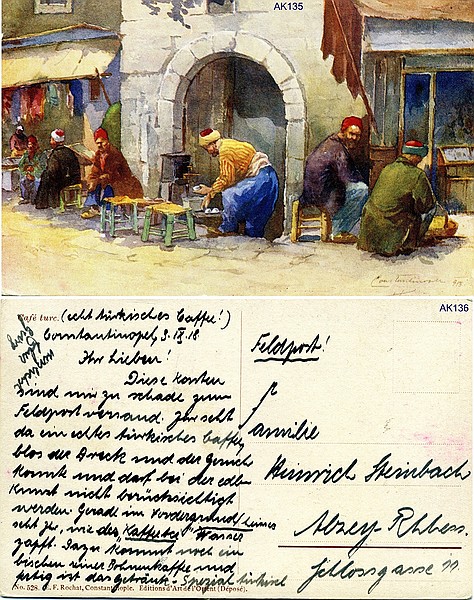 AK135
Constantinople
AK136
Café turc. (echt türkisches Caffee!)
Constantinopel, 3. IX. 18
Ihr Lieben!
Diese Karten
sind mir zu schade zum
Feldpost versand. Ihr seht
da ein echtes türkisches Caffee,
blos der Dreck und der Geruch
konnte und darf bei der edlen
Kunst nicht berücksichtigt
werden. Gerade im Vordergrund
seht Ihr, wie der "Kaffetse" Wasser
zapft. Dazu kommt noch ein
bischen einer Bohnenkaffee und
fertig ist das Getränk - Spezial türkisch
No. 528. F. Rochat, Constantinople. Editions d'Art de l'Orient (Déposé).
Feldpost!
Familie
Heinrich Steinbach
Alzey Rhhess.
Schlossgasse 11.